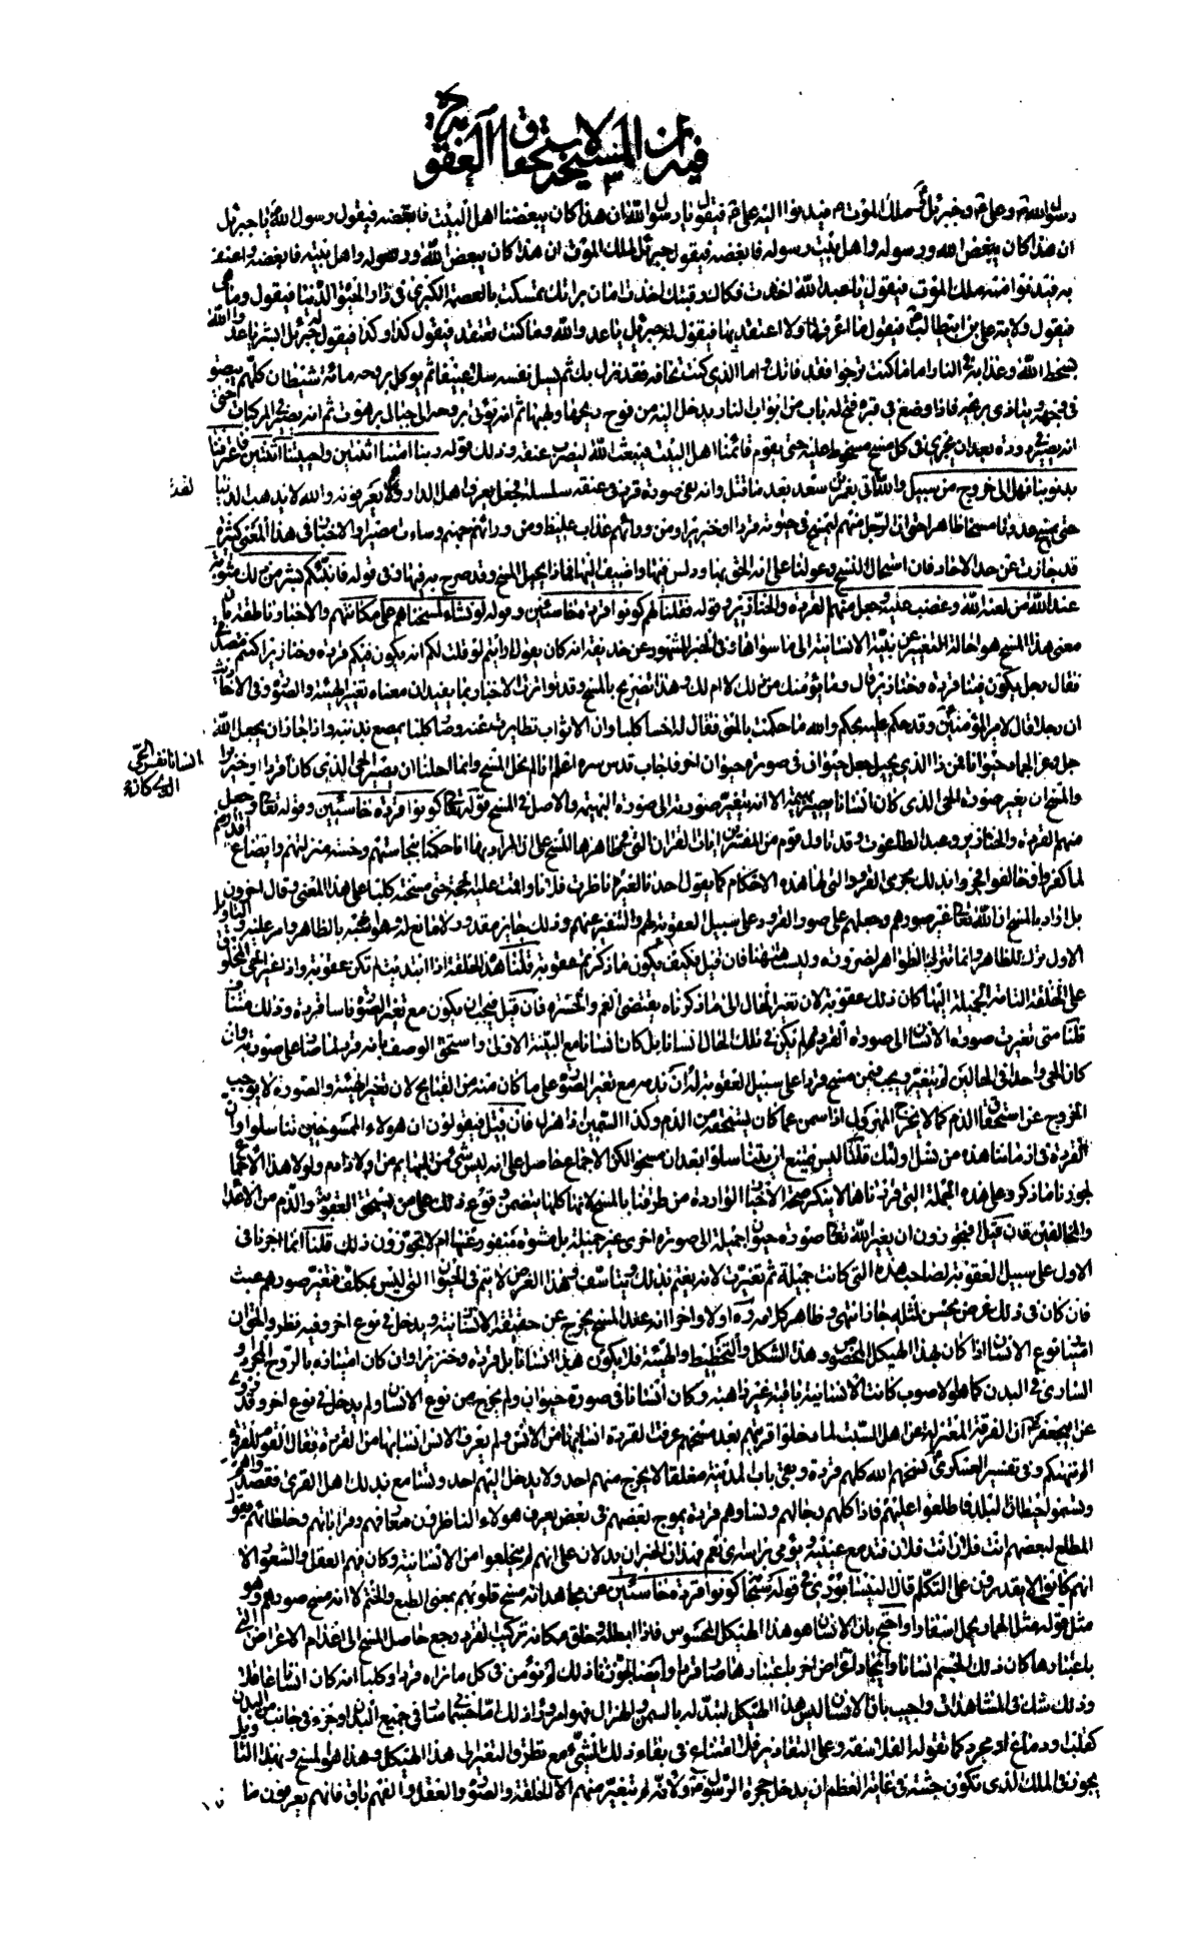 فيه ان المسيخ لا يستحق العقوبة
رسول الله وعلى وجبرئيل وملك الموت فيدنوا اليه على فيقول يا رسول الله ان هذا كان يبغضنا اهل البيت فابغضه فيقول رسول الله يا جبرئيل
ان هذا كان يبغض الله ورسوله واهل بيت رسوله فابغضه فيقول جبرئيل لملك الموت ان هذا كان يبغض الله ورسوله واهل بيته فابغضه واعنف
به فيدنوا منه ملك الموت فيقول يا عبد الله اخذت فكاك رقبتك اخذت امان برائتك تمسكت بالعصمة الكبرى في دار الحيوة الدنيا فيقول وما هي
فيقول ولاية على بن ابيطالب فيقول ما اعرفها ولا اعتقد بها فيقول له جبرئيل يا عدو الله وما كنت تعتقد فيقول كذا وكذا فيقول له جبرئيل ابشر يا عدو الله
بسخط الله وعذابه في النار اما ما كنت ترجوا فقد فاتك واما الذى كنت تخافه فقد نزل بك ثم يسل نفسه سلا عنيفا ثم يوكل بروحه مائة شيطان كلهم يبصق
في وجهه ويتاذى بريحه فاذا وضع في قبره فتح له باب من ابواب النار يدخل اليه من فوح ريحها ولهبها ثم انه يؤتى بروحه الى جبال برهوت ثم انه يصير في المركبات حتى
انه يصير في دودة بعد ان يجرى في كل مسخ مسخوط عليه حتى يقوم قائمنا اهل البيت فيبعث الله ليضرب عنقه وذلك قوله ربنا امتنا اثنتين واحييتنا اثنتين فاعترفنا
بذنوبنا فهل الى خروج من سبيل والله لقد اتى بعمر بن سعد بعد ما قتل وانه لفى صورة قرد في عنقه سلسلة فجعل يعرف اهل الدار وهم لا يعرفونه والله لا يذهب الدنيا
حتى يمسخ عدونا مسخا ظاهرا حتى ان الرجل منهم ليمسخ في حيوته قردا او خنزيرا ومن ورائهم عذاب غليظ ومن ورائهم جهنم وساءت مصيرا والاخبار في هذا المعنى كثيرة
قد جازت عن حد الاحاد فان استحال النسخ وعولنا على انه الحق بها ودلس فيها واضيف اليها فما ذا يحيل المسخ وقد صرح به فيها وفى قوله قل هل انبئكم بشر من ذلك مثوبة
عند الله من لعنه الله وغضب عليه وجعل منهم القردة والخنازير وقوله فقلنا لهم كونوا قردة خاسئين وقوله لو نشاء لمسخناهم على مكانتهم والاخبار ناطقة بان
معنى هذا المسخ هو احالة التغيير عن بنية الانسانية الى ما سواها وفى الخبر المشهور عن حذيفة انه كان يقول ارايتم لو قلت لكم انه يكون فيكم قردة وخنازير اكنتم مصدقى
فقال رجل يكون فينا قردة وخنازير قال وما يؤمنك من ذلك لا ام لك وهذا تصريح بالمسخ وقد تواترت الاخبار بما يفيد ان معناه تغيير الهيئة والصورة وفى الاحاديث
ان رجلا قال لامير المؤمنين وقد حكم عليه بحكم والله ما حكمت بالحق فقال له اخسا كلبا وان الاثواب تطايرت عنه وصار كلبا يمصع بذنبه واذا جاز ان يجعل الله
جل وعز الجماد حيوانا فمن ذا الذى يحيل جعل حيوان في صورة حيوان اخر فاجاب قدس سره اعلم انا لم نحل المسخ وانما احلنا ان يصير الحى الذى كان انسانا نفس الحى الذى كان قردا او خنزيرا
والمسخ ان يغير صورة الحى الذى كان انسانا يصير بهيمة لا انه يتغير صورته الى صورة البهيمة والاصل في المسخ قوله تعالى كونوا قردة خاسئين وقوله تعالى وجعل
منهم القردة والخنازير وعبد الطاغوت وقد تاول قوم من المفسرين ايات القران التى في ظاهرها المسخ على ان المراد بها انا حكمنا بنجاستهم وخسة منزلتهم وايضاع اقدارهم
لما كفروا وخالفوا فجروا بذلك مجرى القرود التى لها هذه الاحكام كما يقول احدنا لغيره ناظرت فلانا واقمت عليه الحجة حتى مسخته كلبا على هذا المعنى وقال اخرون
بل اراد بالمسخ ان الله تعالى غير صورهم وجعلهم على صور القرود على سبيل العقوبة لهم والتنفير عنهم وذلك جايز مقدور لا مانع له وهو اشبه بالظاهر وامر عليه والتاويل
الاول ترك للظاهر وانما تترك الظواهر لضرورة وليست ههنا فان قيل فكيف يكون ما ذكرتم عقوبة قلنا هذه الخلقة اذا ابتدئت لم تكن عقوبة واذا غير الحى المخلوق
على الخلقة التامة الجميلة اليها كان ذلك عقوبة لان تغير الحال الى ما ذكرناه يقتضى الغم والحسرة فان قيل فيجب ان يكون مع تغير الصورة ناسا قردة وذلك متناف
قلنا متى تغيرت صورة الانسان الى صورة القرد لم يكن في تلك الحال انسانا بل كان انسانا مع البنية الاولى واستحق الوصف بانه قرد لما صار على صورته وان
كان الحى واحدا في الحالين لم يتغير ويجب فيمن مسخ قردا على سبيل العقوبة له ان يذمه مع تغير الصورة على ما كان منه من القبايح لان تغير الهيئة والصورة لا يوجب
الخروج عن استحقاق الذم كما لا يخرج المهزول اذا سمن عما كان يستحقه من الذم وكذا السمين اذا هزل فان قيل فيقولون ان هولاء الممسوخين تناسلوا وان
القردة في ازماننا هذه من نسل اولئك قلنا ليس يمتنع ان يتناسلوا بعد ان مسخوا لكن الاجماع حاصل على انه ليس شئ من البهايم من اولاد ادم ولولا هذا الاجماع
لجوزنا ما ذكر وعلى هذه الجملة التى قررناها لا ينكر صحة الاخبار الواردة من طرقنا بالمسخ لانها كلها يتضمن وقوع ذلك على من يستحق العقوبة والذم من الاعداء
والمخالفين فان قيل افتجوزون ان يغير الله تعالى صورة حيوان جميلة الى صورة اخرى غير جميلة بل مشوهة منفور عنها ام لا تجوزون ذلك قلنا انما اجزنا في
الاول على سبيل العقوبة لصاحب هذه التى كانت جميلة ثم تغيرت لانه يغتم بذلك ويتاسف وهذا الغرض لا يتم في الحيوان التى ليس بمكلف فتغير صورهم عبث
فان كان في ذلك غرض يحسن لمثله جاز انتهى وظاهر كلامه ره اولا واخرا انه عند المسخ يخرج عن حقيقة الانسانية ويدخل في نوع اخر وفيه نظر والحق ان
امتياز نوع الانسان اذا كان بهذا الهيكل المخصوص وهذا الشكل والتخطيط والهيئة فلا يكون هذا انسانا بل قردة وخنزير وان كان امتيازه بالروح المجرد و
السارى في البدن كما هو الاصوب كانت الانسانية باقية غير ذاهبة وكان انسانا في صورة حيوان ولم يخرج من نوع الانسان ولم يدخل في نوع اخر وقد روى
عن ابيجعفر ان الفرقة المعتزلة عن اهل السبت لما دخلوا قريتهم بعد مسخهم عرفت القردة انسابها من الانس ولم يعرف الانس انسابها من القردة فقال القوم للقردة
الم ننهكم وفى تفسير العسكرى فمسخهم الله كلهم قردة وبقى باب المدينة مغلقا لا يخرج منهم احد ولا يدخل اليهم احد وتسامع بذلك اهل القرى فقصدوهم
وتسموا حيطان البلد فاطلعوا عليهم فاذا كلهم رجالهم ونساؤهم قردة يموج بعضهم في بعض يعرف هولاء الناظرون معارفهم وقراباتهم وخلطائهم يقول
المطلع لبعضهم انت فلان انت فلان فتدمع عينيه ويؤمى براسه اى نعم فهذان الخبران يدلان على انهم لم يتخلعوا من الانسانية وكان فيهم العقل والشعور الا
انهم كانوا لا يقدرون على التكلم قال النيسابورى في قوله تعالى كونوا قردة خاسئين عن مجاهد انه مسخ قلوبهم بمعنى الطبع والختم لا انه مسخ صورهم وهو
مثل قوله مثل الحمار يحمل اسفارا واحتج بان الانسان هو هذا الهيكل المحسوس فاذا ابطله وخلق مكانه تركيب القرد رجع حاصل المسخ الى اعدام الاعراض التى
باعتبارها كان ذلك الجسم انسانا وايجاد اعراض اخر باعتبارها صار قردا وايضا لو جوزنا ذلك لم نؤمن في كل ما نراه قردا وكلبا انه كان انسانا عاقلا
وذلك شك في المشاهدات واجيب بان الانسان ليس هذا الهيكل لتبدله بالسمن والهزال فهو امر وراء ذلك اما جسمانى سار في جميع البدن او جزء في جانب من البدن
كقلب ودماغ او مجرد كما تقوله الفلاسفة وعلى التقادير فلا امتناع في بقاء ذلك الشئ مع تطرق التغير الى هذا الهيكل وهذا هو المسخ وبهذا التاويل
يجوز في الملك الذى تكون جثته في غاية العظم ان يدخل حجرة الرسول ولانه لم يتغير منهم الا الخلقة والصورة والعقل والفهم باق فانهم يعرفون ما